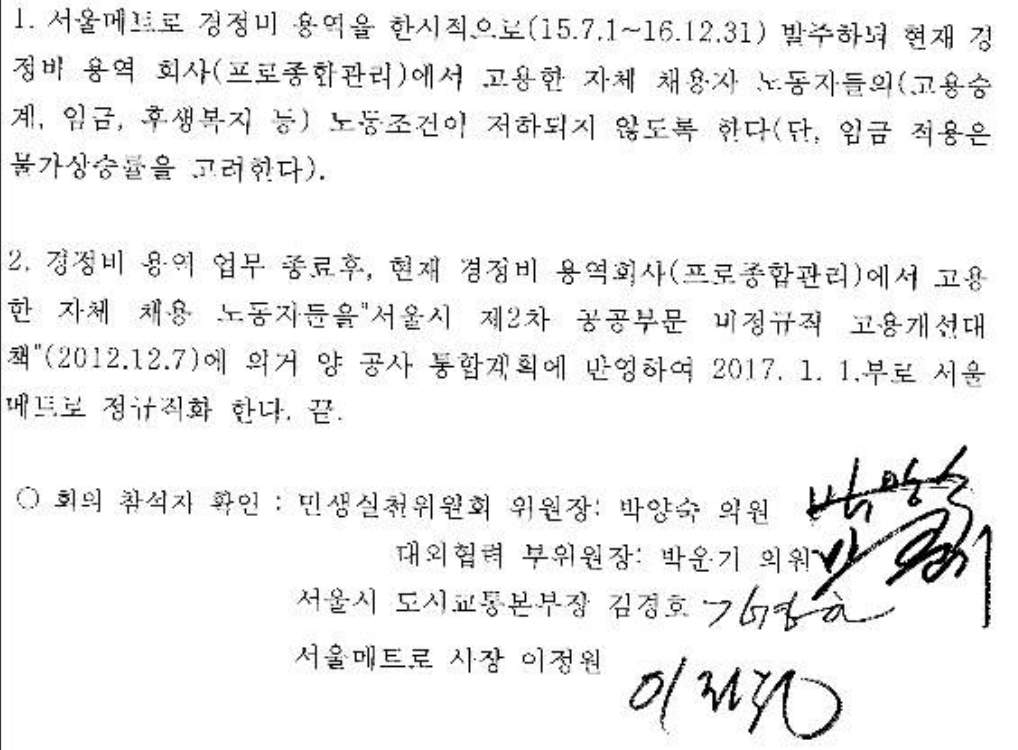 1. 서울메트로 경정비 용역을 한시적으로(15.7.1~16.12.31) 발주하며 현재 경
정비 용역 회사(프로종합관리)에서 고용한 자체 채용자 노동자들의(고용승
계, 임금, 후생복지 등) 노동조건이 저하되지 않도록 한다(단, 임금 적용은
물가상승률을 고려한다).
2. 경정비 용역 업무 종료후, 현재 경정비 용역회사(프로종합관리)에서 고용
한 자체 채용 노동자들을"서울시 제2차 공공부문 비정규직 고용개선대
책"(2012.12.7)에 의거 양 공사 통합계획에 반영하여 2017. 1. 1.부로 서울
메트로 정규직화 한다. 끝.
○ 회의 참석자 확인 : 민생실천위원회 위원장: 박양숙 의원 박양숙
대외협력 부위원장: 박운기 의원
서울시 도시교통본부장 김경호 김경호
서울메트로 사장 이정원 이정원